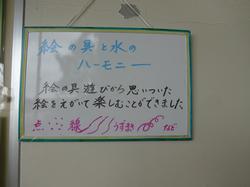 絵の具と水の
ハーモニー
絵の具遊びから思いついた
絵をえがいて楽しむことができました
点 線 うずまき など